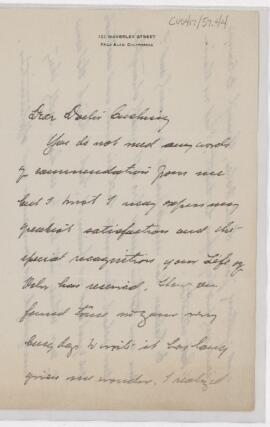 CUS417/57.44
WAVERLEY STREET
PALO ALTO, CALIFORNIA
Dear Doctor Cushing
You do not need any words
of commendation from me
but I must I may express my
greatest satisfaction and the
special recognition your Life of
Osler has received. How you
found time in your very
busy days to write it has long
given me wonder. I realized